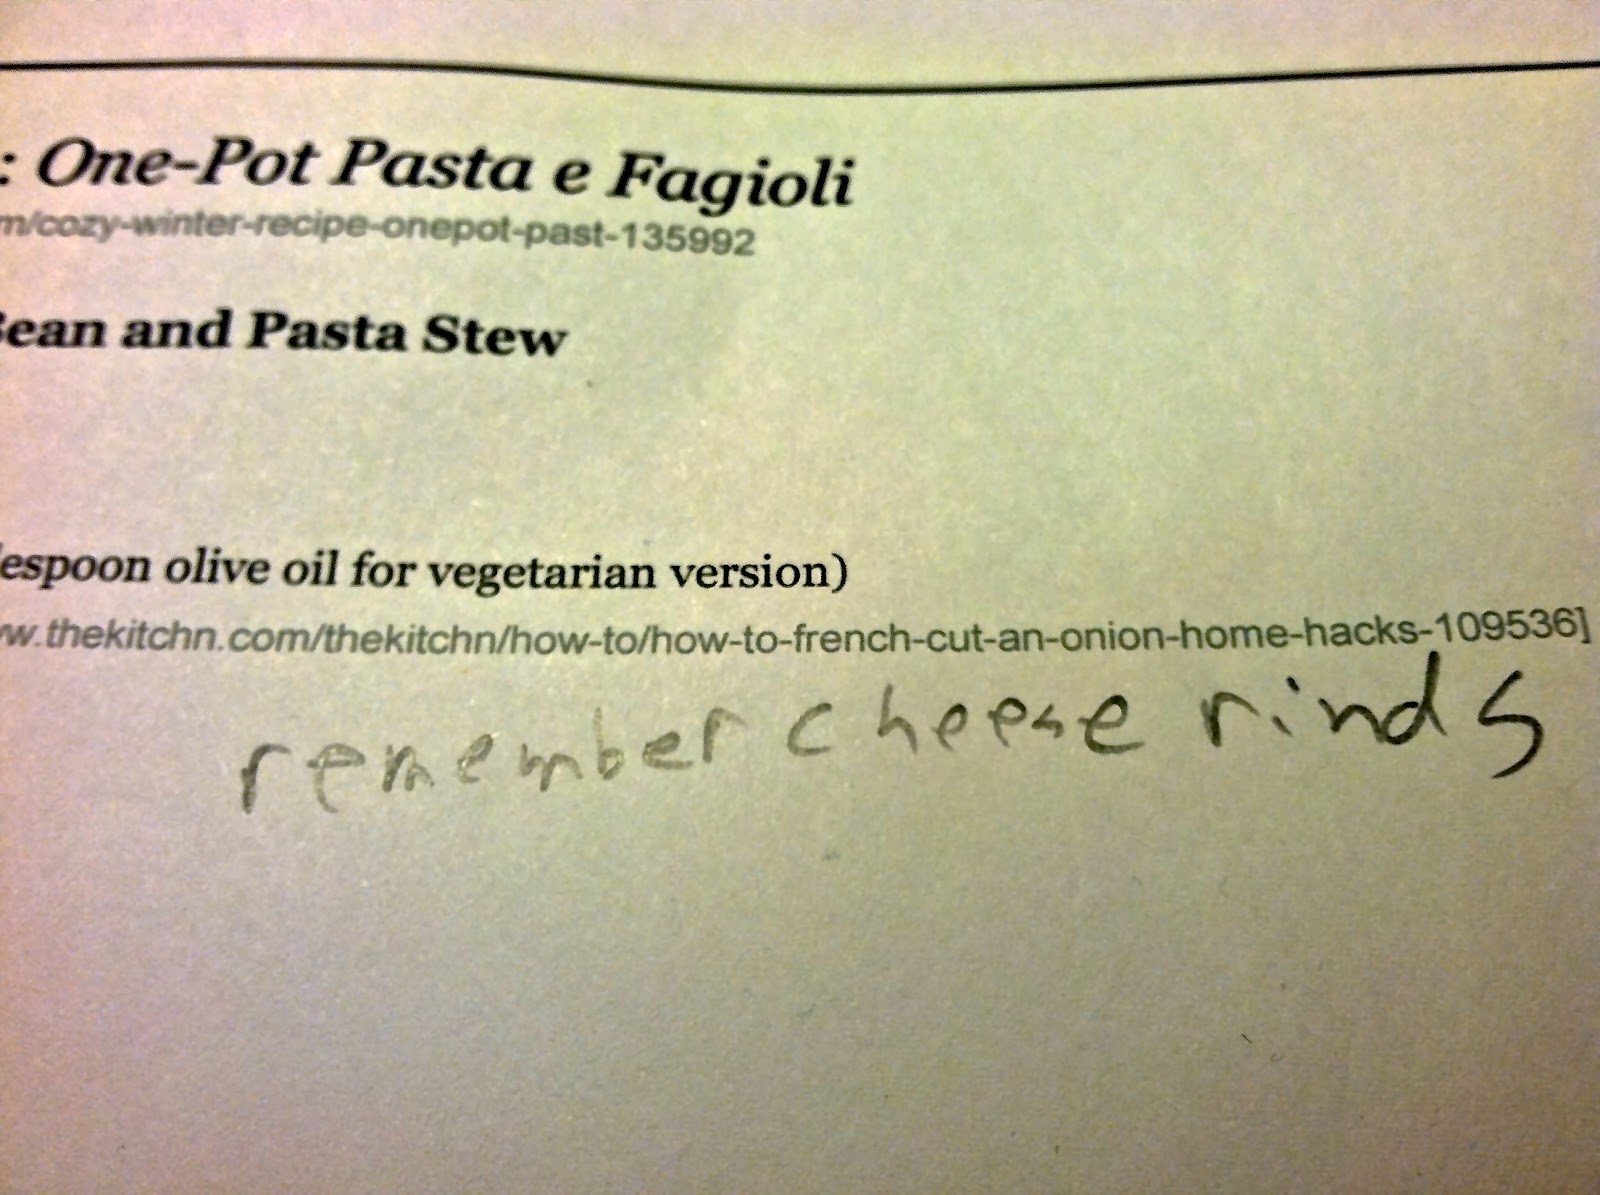 : One-Pot Pasta e Fagioli
m/cozy-winter-recipe-onepot-past-135992
Bean and Pasta Stew
espoon olive oil for vegetarian version)
w.thekitchn.com/thekitchn/how-to/how-to-french-cut-an-onion-home-hacks-109536]
remember cheese rinds